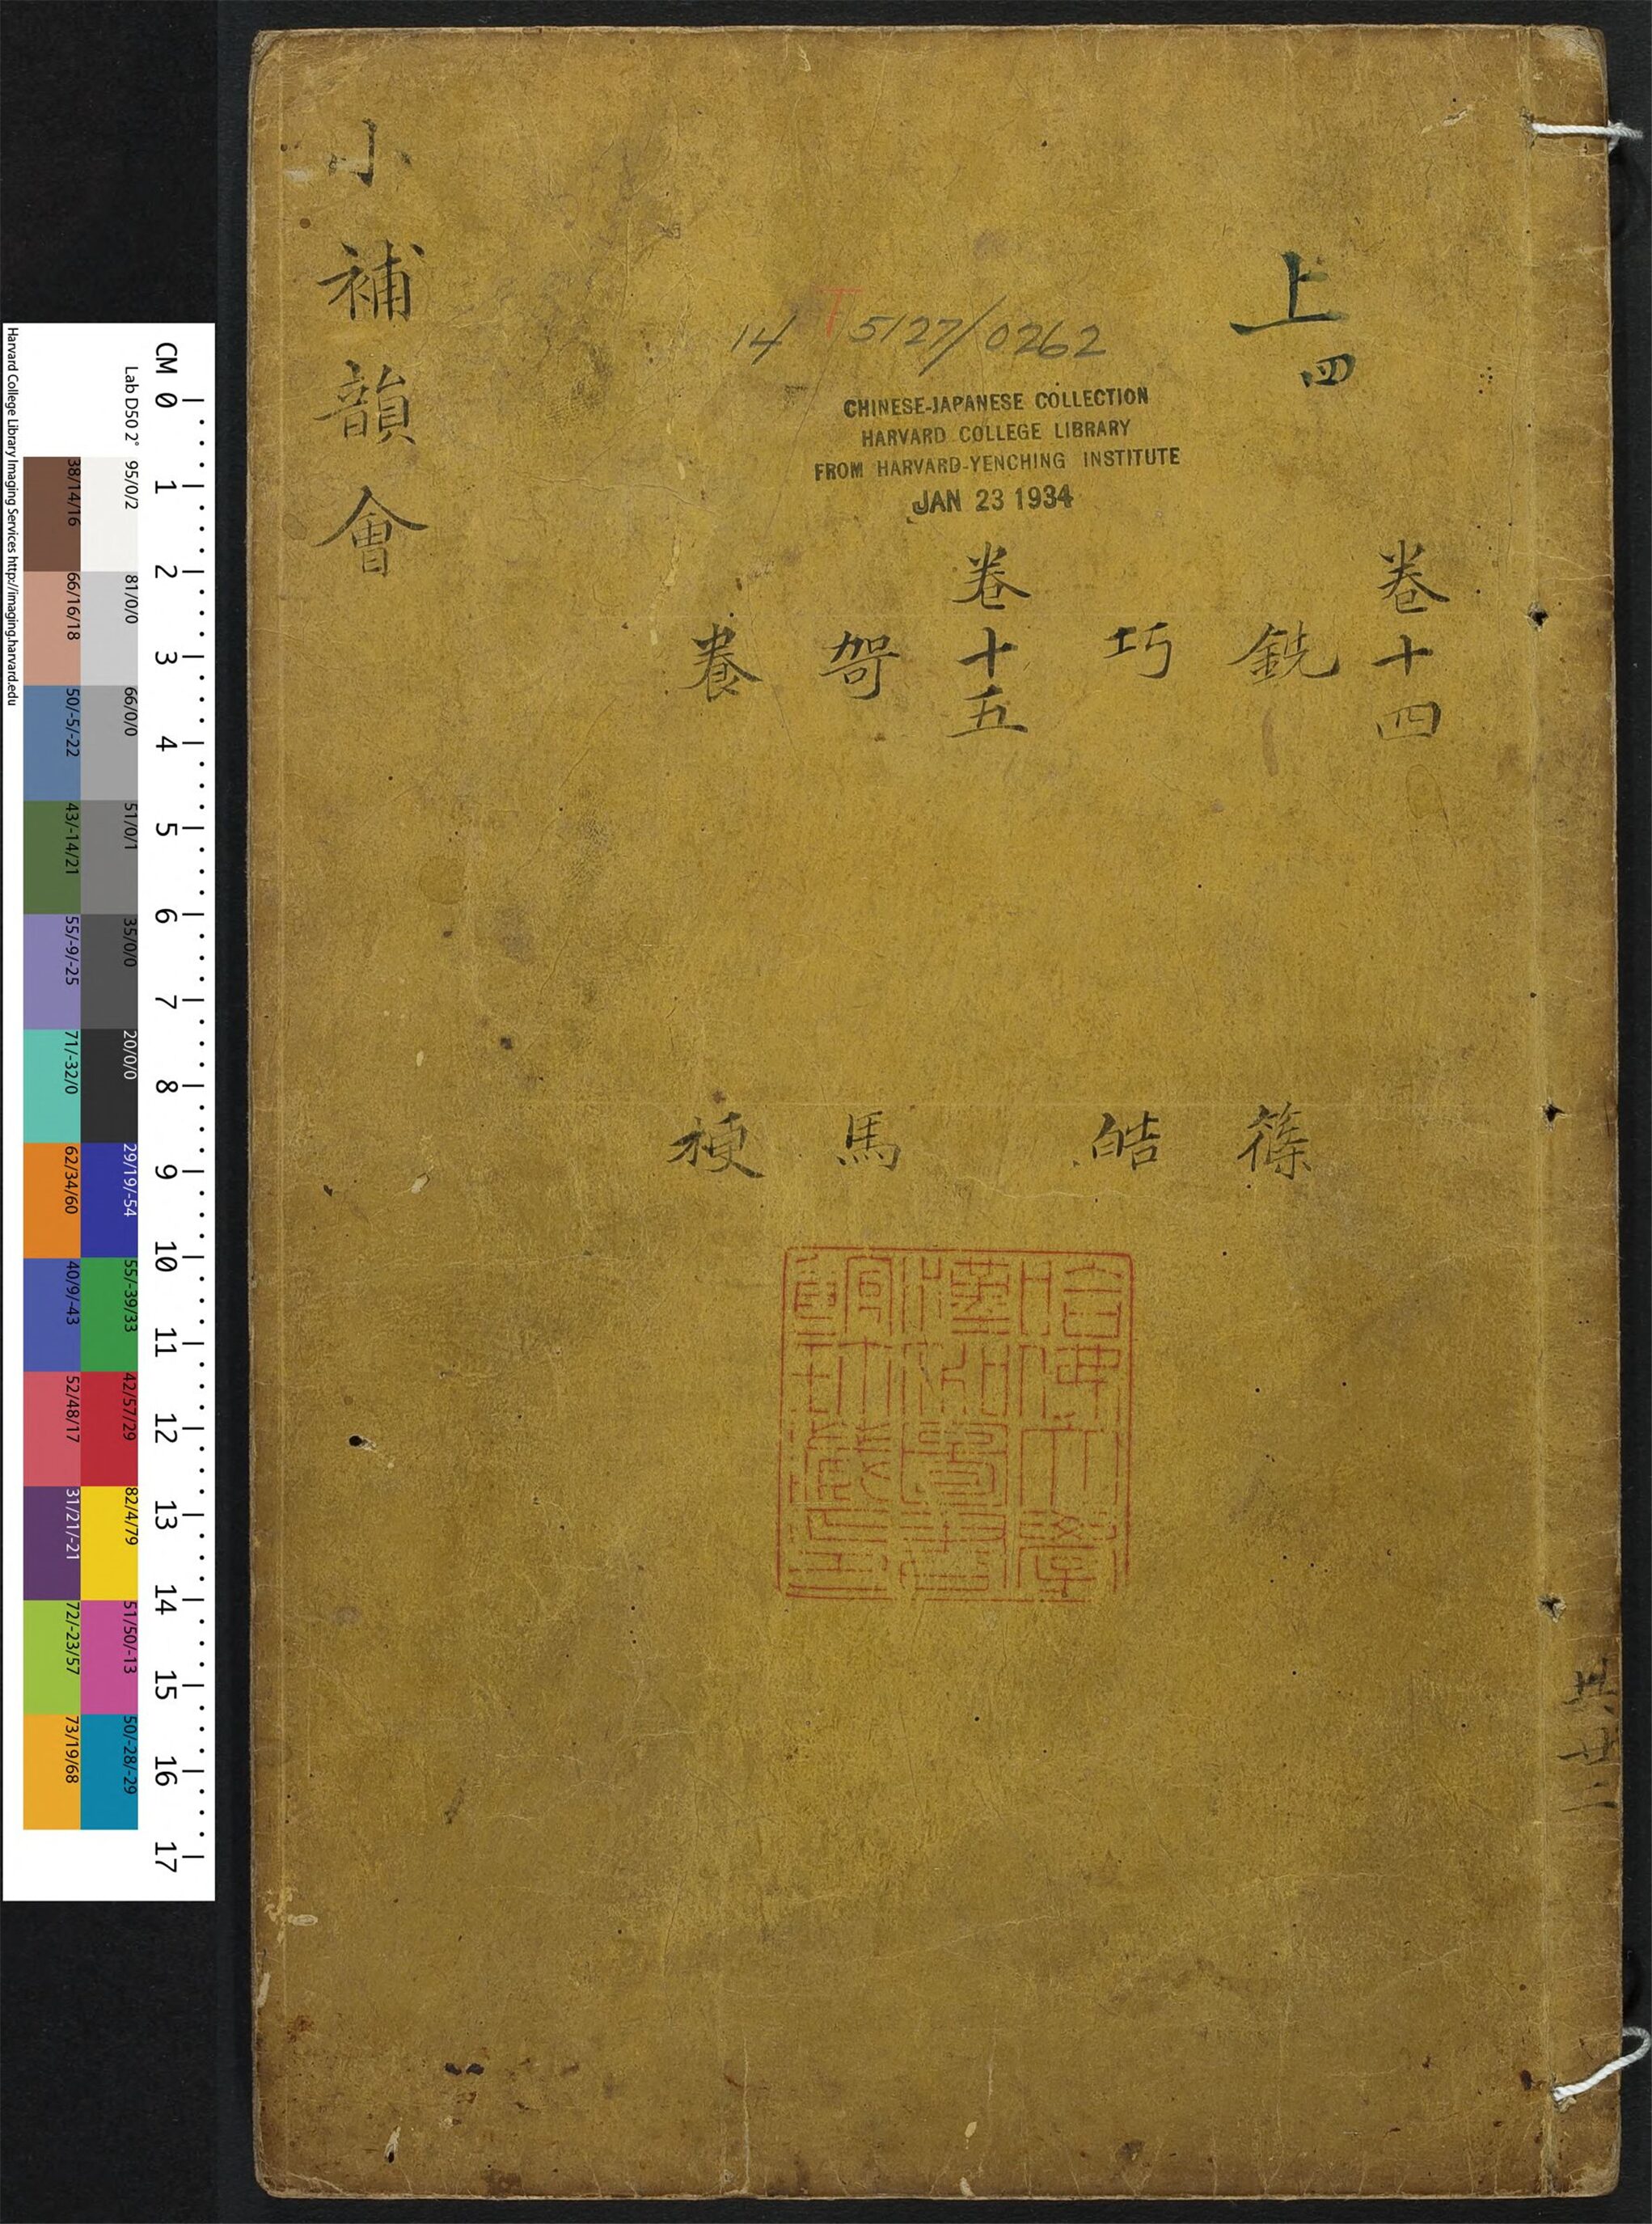 小補韻會
上四
14 T 5127/0262
CHINESE-JAPANESE COLLECTION
HARVARD COLLEGE LIBRARY
FROM HARVARD-YENCHING INSTITUTE
JAN 23 1934
卷十四
銑 篠
巧 皓
卷十五
哿 馬
養 梗
哈佛大學
漢和圖書
館珍藏印
共廿二
CM 0 1 2 3 4 5 6 7 8 9 10 11 12 13 14 15 16 17
Lab D50 2°
95/0/2
81/0/0
66/0/0
51/0/1
35/0/0
20/0/0
29/19/-54
55/-39/33
42/57/29
82/4/79
51/50/-13
50/-28/-29
38/14/16
66/16/18
50/-5/-22
43/-14/21
55/-9/-25
71/-32/0
62/34/60
40/9/-43
52/48/17
31/21/-21
72/-23/57
73/19/68
Harvard College Library Imaging Services http://imaging.harvard.edu